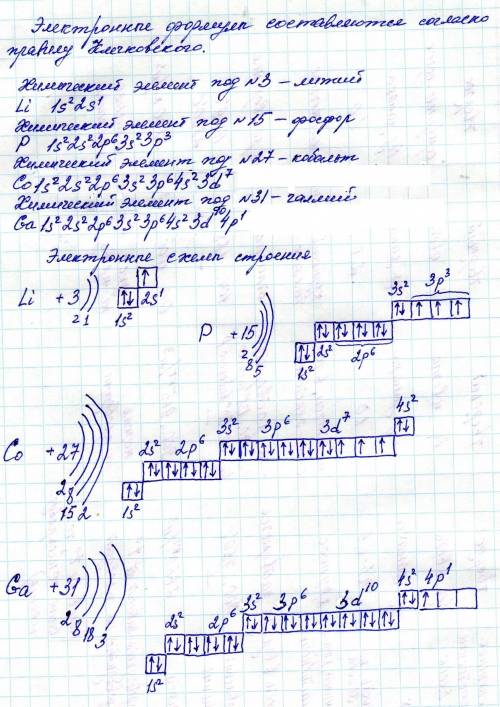 Электронные формулы составляются согласно
правилу Клечковского.
Химический элемент под №3 – литий
Li 1s²2s¹
Химический элемент под №15 – фосфор
P 1s²2s²2p⁶3s²3p³
Химический элемент под №27 – кобальт
Co 1s²2s²2p⁶3s²3p⁶4s²3d⁷
Химический элемент под №31 – галлий
Ga 1s²2s²2p⁶3s²3p⁶4s²3d¹⁰4p¹
Электронные схемы строения
Li +3 ↑
2 1 ↑↓ 2s¹
1s²
3s² 3p³
P +15 ↑↓ ↑ ↑ ↑
2 8 5 ↑↓ ↑↓ ↑↓ ↑↓
↑↓ 2s² 2p⁶
1s²
4s²
Co +27 2s² 2p⁶ 3s² 3p⁶ 3d⁷ ↑↓
↑↓ ↑↓ ↑↓ ↑↓ ↑↓ ↑↓ ↑ ↑ ↑
↑↓ ↑↓ ↑↓ ↑↓
2 8 15 2 ↑↓
1s²
Ga +31 4s² 4p¹
3s² 3p⁶ 3d¹⁰ ↑↓ ↑
2s² 2p⁶ ↑↓ ↑↓ ↑↓ ↑↓ ↑↓ ↑↓ ↑↓ ↑↓
2 8 18 3 ↑↓ ↑↓ ↑↓ ↑↓
↑↓
1s²